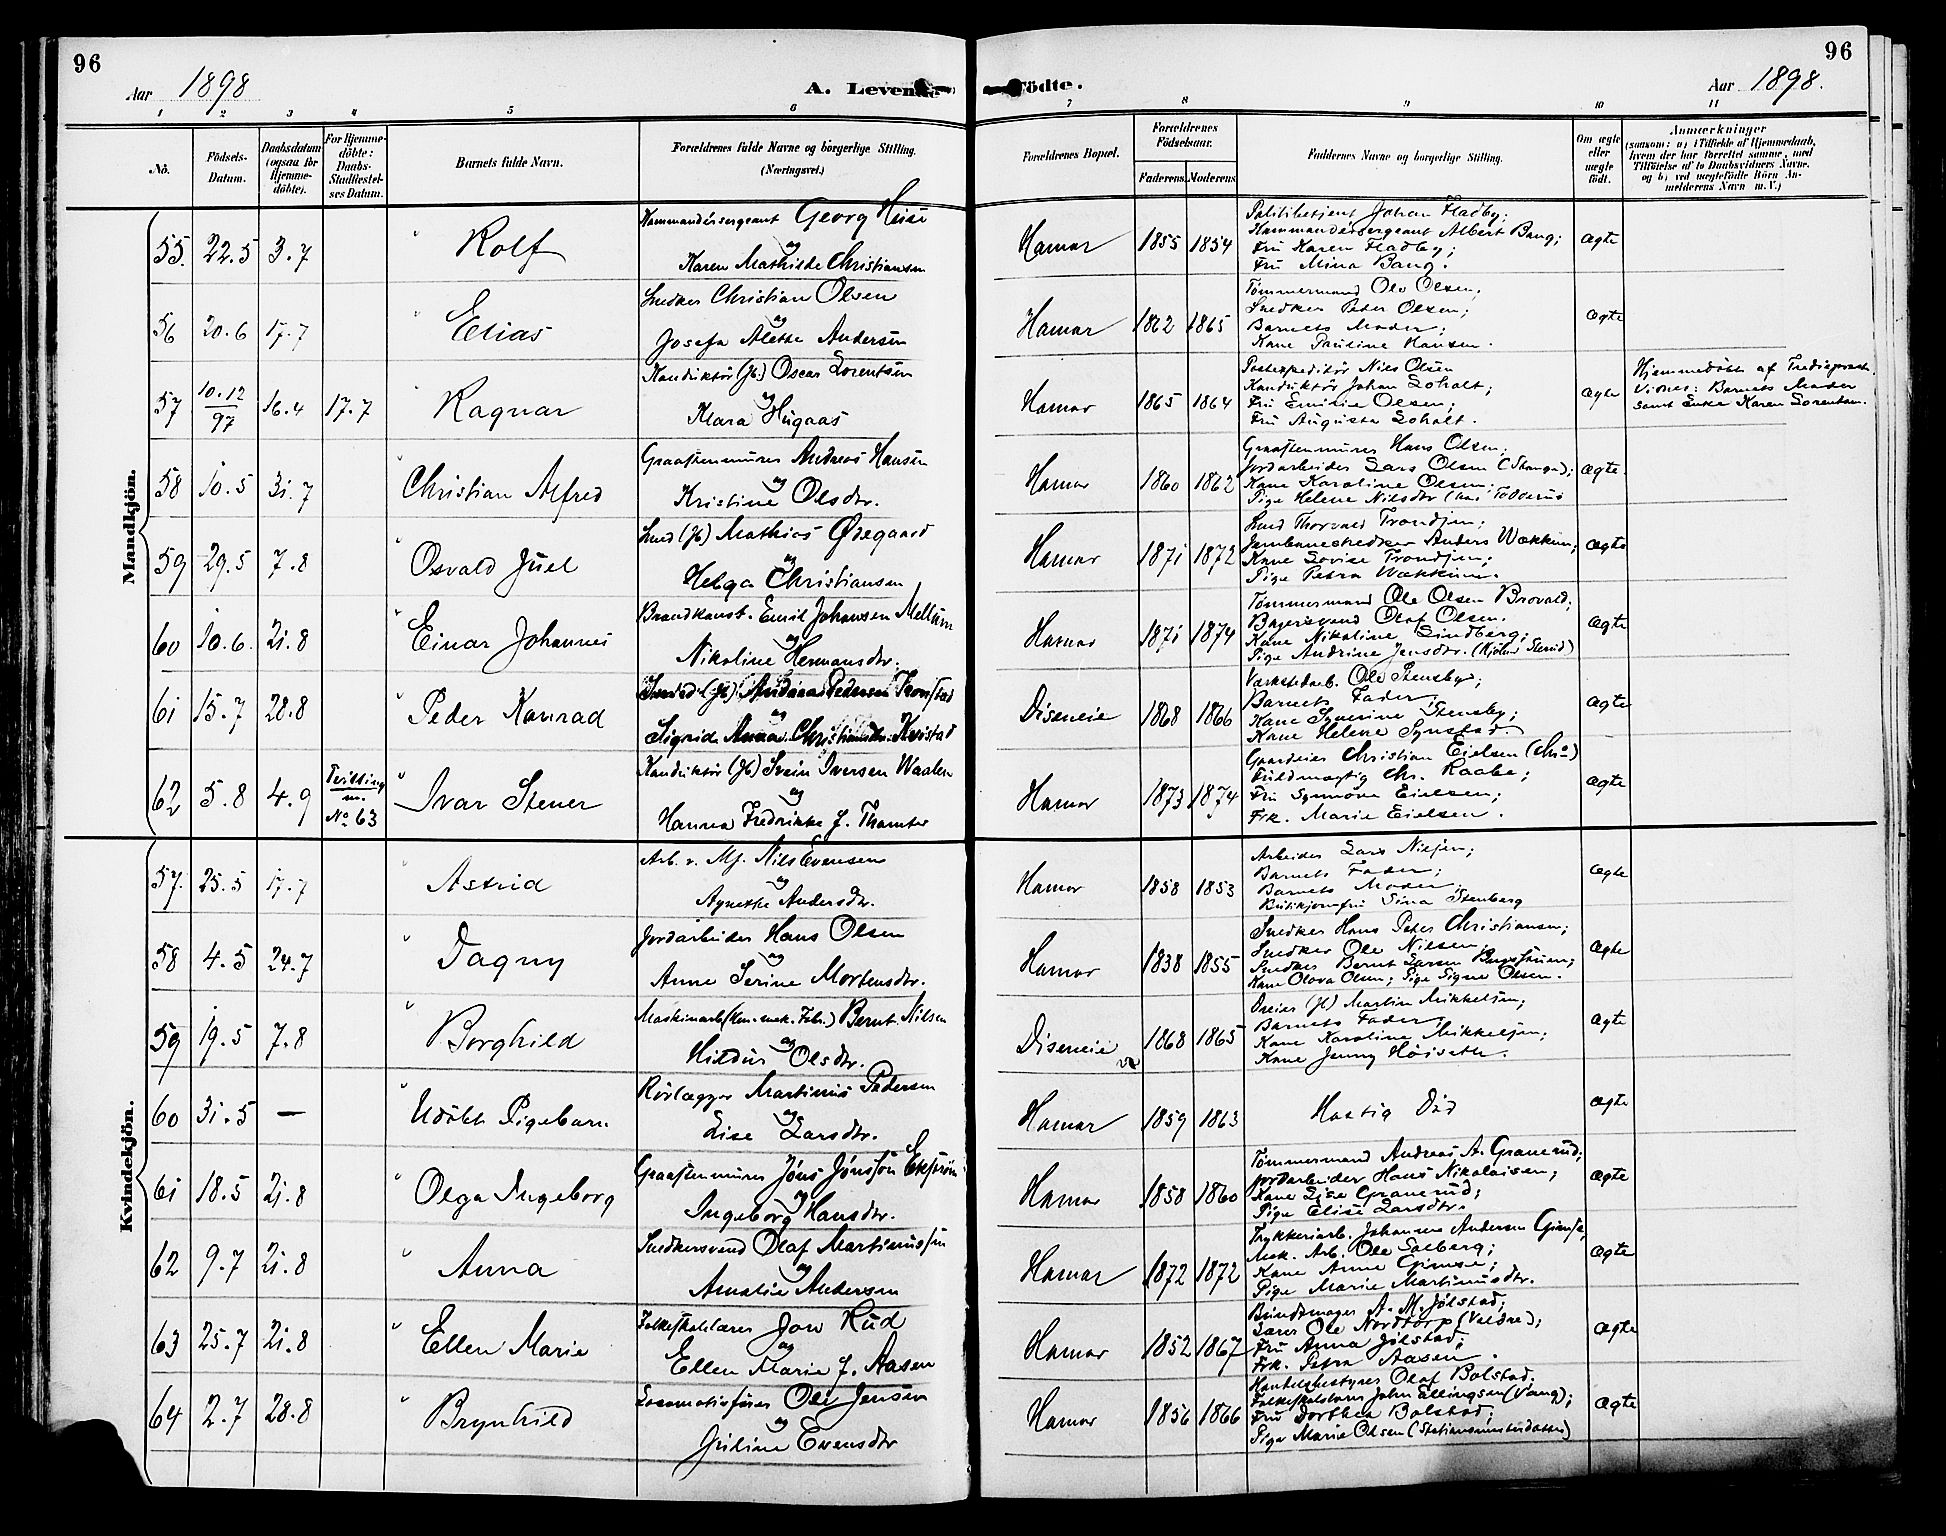 96
Aar 1898
A. Levende
Födte.
96
Aar 1898.
1 2 3 4 5 6 7 8 9 10 11
No.
Födsels-
Datum.
Daabsdatum
(ogsaa for
Hjemme-
döbte).
For Hjemme-
döbte:
Daabs-
Stadfæstel-
ses Datum.
Barnets fulde Navn.
Forældrenes fulde Navne og borgerlige Stilling.
(Næringsvei.)
Forældrenes Bopæl.
Forældrenes
Födselsaar.
Faderens. Moderens.
Faddernes Navne og borgerlige Stilling.
Om ægte
eller
uægte
födt.
Anmærkninger
(saasom: a) i Tilfælde af Hjemmedaab,
hvem der har forrettet samme, med
Tilföielse af to Daabsvidners Navne,
og b) ved uægtefödte Börn An-
melderens Navn m. V.)
Mandkjön.
55. 22.5 3.7 Rolf
Kommandersergeant Georg
og
Karen Mathilde Christiansen
Hamar 1855 1854
Politibetjent Johan Fladby;
Kommandersergeant Albert Bang;
Fru Karen Fladby;
Fru Mina Bang.
ægte
56 20.6 17.7 Elias
Snedker Christian Olsen
og
Josefa Alette Andersen
Hamar 1862 1865
Tömmermand Ole Olsen;
Snedker Peter Olsen;
Barnets Moder;
Kone Pauline Hansen.
ægte
57 10.12/97 16.4 17.7 Ragnar
Konduktör (Jb.) Oscar Lorentsen
og
Klara Hugaas
Hamar 1865 1864
Postexpeditör Nils Olsen
Konduktör Johan Soholt;
Fru Emilie Olsen;
Fru Augusta Soholt.
ægte
Hjemmedöbt af
Vidner: Barnets Moder
samt Enke Karen Lorentsen.
58 10.5 31.7 Christian Alfred
Graastensmurer Andreas Hansen
og
Kristine Olsdtr.
Hamar 1860 1862
Graastensmurer Hans Olsen;
Jordarbeider Lars Olsen (Stange);
Kone Karoline Olsen;
Pige Helene Nilsdtr
ægte.
59 29.5 7.8 Osvald Juel
Smed (Jb) Mathias Ødegaard
og
Helga Christiansen
Hamar 1871 1872
Smed Thorvald Trondsen;
Anders Wækkum;
Kone Lovise Trondsen;
Pige Petra Wækkum.
ægte
60 10.6. 21.8 Einar Johannes
Brandkonst. Emil Johansen Mellum
og
Nikoline Hermansdtr.
Hamar 1871 1874
Tömmermand Ole Olsen Brovald;
Olaf Olsen.
Kone Nikoline Lindberg;
Pige Andrine Jensdtr.
ægte
61 15.7 28.8 Peder Konrad
Smed (Jb) Andreas Pedersen Tronstad
og
Sigrid Anna Christiansdtr. Kvistad
Diseneie 1868 1866
Værkstedarb. Ole Stensby;
Barnets Fader;
Kone Synerine Stensby;
Kone Helene Synstad.
ægte
62 5.8 4.9 Tvilling
m.
No 63
Ivar Stener
Konduktör (Jb) Svein Iversen Waalen
og
Hanna Fredrikke f. Thamter
Hamar 1873 1874
Gaardeier Christian Eielsen
Fuldmægtig Chr. Raabe;
Fru Synnöve Eielsen;
Frk. Marie Eielsen.
ægte
Kvindekjön.
57. 25.5 17.7 Astrid
Arb. v. Mj. Nils Evensen
og
Agnethe Andersdtr.
Hamar 1858 1853
Arbeider Lars Nilsen;
Barnets Fader;
Barnets Moder;
Butikjomfru Lina Stenberg
ægte
58 4.5 24.7 Dagny
Jordarbeider Hans Olsen
og
Anne Serine Mortensdtr.
Hamar 1838 1855
Snedker Hans Peter Christiansen;
Snedker Ole Nilsen;
Snedker Bernt Larsen
Kone Olova Olsen; Pige Signe Olsen.
ægte
59 19.5 7.8 Borghild
Maskinarb. Bernt Nilsen
og
Hildur Olsdtr.
Diseneie 1868 1865
Dreier (Jb) Martin Mikkelsen;
Barnets Fader
Kone Karoline Mikkelsen;
Kone Jenny Höiseth.
ægte
60 31.5 — Udöbt Pigebarn.
Rörlægger Martinus Pedersen
og
Lise Larsdtr.
Hamar 1859 1863
Hastig Död
ægte
61 18.5 21.8 Olga Ingeborg
Graastensmurer Jöns Jönsson Ekström
og
Ingeborg Hansdtr.
Hamar 1858 1860
Tömmermand Andreas A. Granerud;
Jordarbeider Hans Nikolaisen;
Kone Lise Granerud;
Pige Elise Larsdtr.
ægte
62 9.7 21.8 Anna
Snedkersvend Olaf Martinussen
og
Amalie Andersen
Hamar 1872 1872
Trykkeriarb. Johannes Andersen Gimse,
Mek. Arb. Ole Solberg;
Kone Anne Gimse;
Pige Marie Martinusdtr.
ægte
63 25.7 21.8 Ellen Marie
Folkeskolelærer Jon Rud
og
Ellen Marie f. Aasen
Hamar 1852 1867
Bundtmager A. M. Jölstad;
Lærer Ole Nordtorp (Veldre);
Fru Anna Jölstad;
Frk. Petra Aasen.
ægte
64 2.7 28.8 Brynhild
Locomotivförer Ole Jensen
og
Juline Evensdtr
Hamar 1856 1866
Handelsbestyrer Olaf Bolstad.
Folkeskolelærer John Ellingsen (Vang);
Fru Dorthea Bolstad;
Pige Marie Olsen (Stationsmesterdatter)
ægte